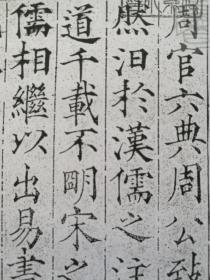 周官六典周公致
然汩於漢儒之注
道千載不明宋之
儒相繼以出易書